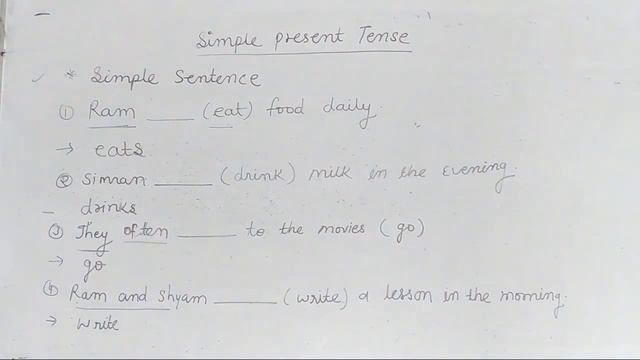 Simple present Tense
* Simple Sentence
① Ram ____ (eat) food daily.
→ eats
② Simran ____ (drink) milk in the evening.
– drinks
③ They often ____ to the movies (go)
→ go
④ Ram and Shyam ____ (write) a lesson in the morning.
→ write